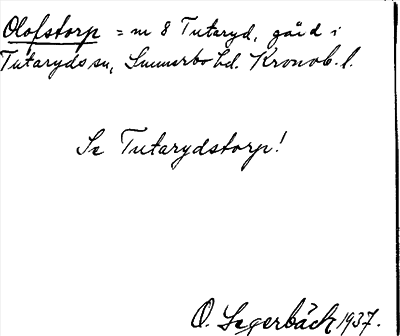 Olofstorp = nr 8 Tutaryd, gård i
Tutaryds sn, Sunnerbo hd. Kronob. l.
Se Tutarydstorp!
O. Segerbäck 1937.